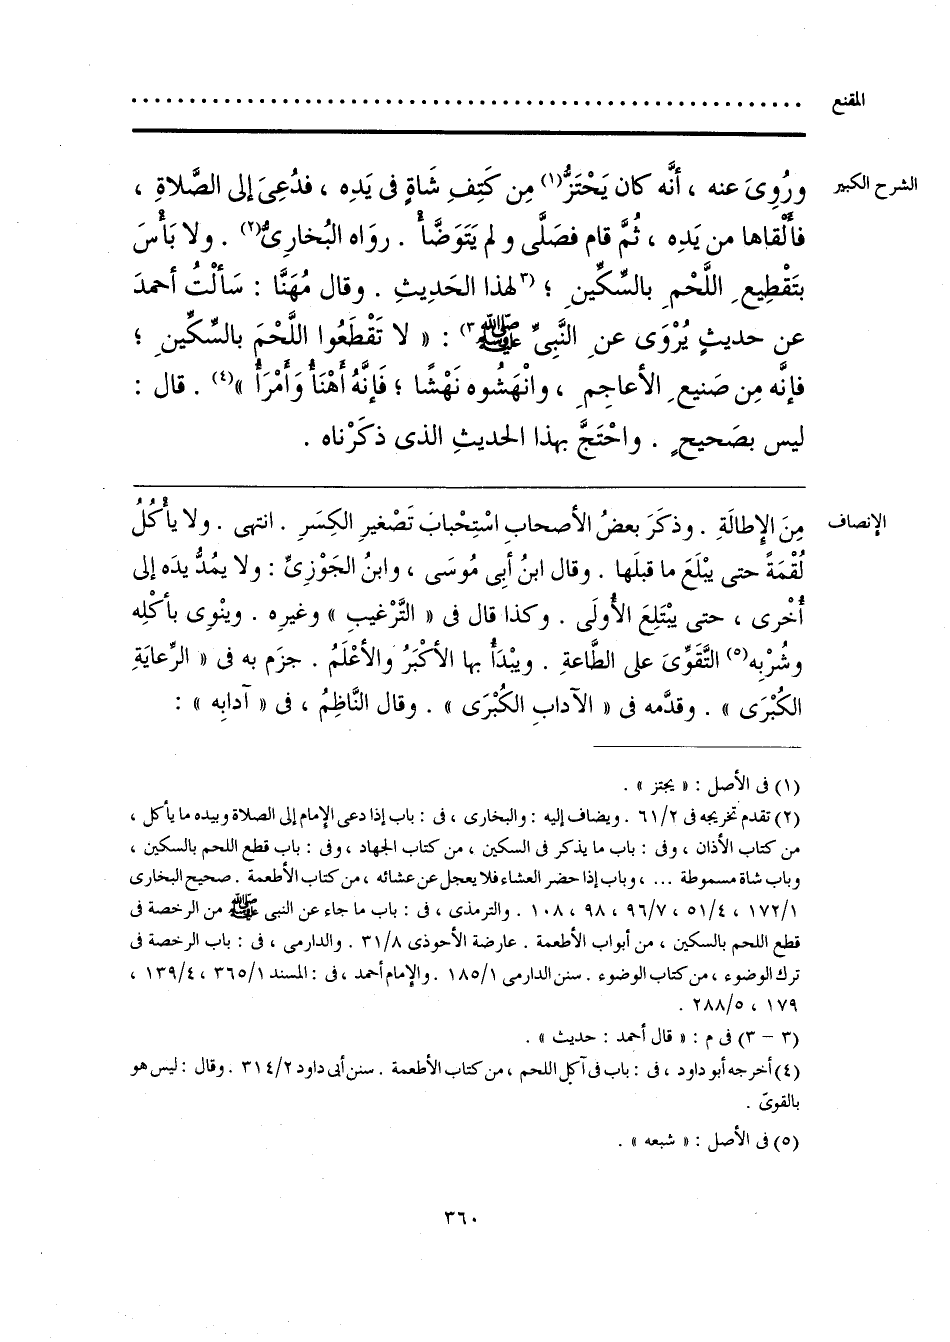 المقنع ................................................................
الشرح الكبير ورُوِىَ عنه ، أنَّه كان يَحْتَزُّ(١) مِن كَتِفِ شَاةٍ فى يَدِه ، فدُعِىَ إلى الصَّلاةِ ،
فأَلْقاها من يَدِه ، ثُمَّ قام فصَلَّى و لم يَتَوَضَّأْ . رواه البُخارىُّ(٢) . ولا بَأْسَ
بتَقْطِيعِ اللَّحْمِ بالسِّكِّينِ ؛ (٣لهذا الحَدِيثِ . وقال مُهَنَّا : سَألْتُ أحمدَ
عن حديثٍ يُرْوَى عنِ النَّبِىِّ ﷺ٣) : « لا تَقْطَعُوا اللَّحْمَ بالسِّكِّينِ ؛
فإنَّه مِن صَنِيعِ الأعاجِمِ ، وانْهَشُوه نَهْشًا ؛ فَإِنَّهُ أَهْنَأُ وَأَمْرَأُ »(٤) . قال :
ليس بصَحيحٍ . واحْتَجَّ بهذا الحديثِ الذى ذكَرْناه .
الإنصاف مِنَ الإِطالَةِ . وذكَرَ بعضُ الأصحابِ اسْتِحْبابَ تَصْغيرِ الكِسَرِ . انتهى . ولا يأْكُلُ
لُقْمَةً حتى يبْلَعَ ما قبلَها . وقال ابنُ أبى مُوسَى ، وابنُ الجَوْزِىِّ : ولا يمُدُّ يدَه إلى
أُخْرى ، حتى يبْتَلِعَ الأُولَى . وكذا قال فى « التَّرْغيبِ » وغيرِه . وينْوِى بأكْلِه
وشُرْبِه(٥) التَّقَوِّىَ على الطَّاعةِ . ويبْدَأُ بها الأكْبَرُ والأعْلَمُ . جزَم به فى « الرِّعايَةِ
الكُبْرَى » . وقدَّمه فى « الآدابِ الكُبْرَى » . وقال النَّاظِمُ ، فى « آدابِه » :
(١) فى الأصل : « يجتز » .
(٢) تقدم تخريجه فى ٦١/٢ . ويضاف إليه : والبخارى ، فى : باب إذا دعى الإمام إلى الصلاة وبيده ما يأكل ،
من كتاب الأذان ، وفى : باب ما يذكر فى السكين ، من كتاب الجهاد ، وفى : باب قطع اللحم بالسكين ،
وباب شاة مسموطة ... ، وباب إذا حضر العشاء فلا يعجل عن عشائه ، من كتاب الأطعمة . صحيح البخارى
١٧٢/١ ، ٥١/٤ ، ٩٦/٧ ، ٩٨ ، ١٠٨ . والترمذى ، فى : باب ما جاء عن النبى ﷺ من الرخصة فى
قطع اللحم بالسكين ، من أبواب الأطعمة . عارضة الأحوذى ٣١/٨ . والدارمى ، فى : باب الرخصة فى
ترك الوضوء ، من كتاب الوضوء . سنن الدارمى ١٨٥/١ . والإمام أحمد ، فى : المسند ٣٦٥/١ ، ١٣٩/٤ ،
١٧٩ ، ٢٨٨/٥ .
(٣ – ٣) فى م : « قال أحمد : حديث » .
(٤) أخرجه أبو داود ، فى : باب فى آكل اللحم ، من كتاب الأطعمة . سنن أبى داود ٣١٤/٢ . وقال : ليس هو
بالقوىّ .
(٥) فى الأصل : « شبعه » .
٣٦٠